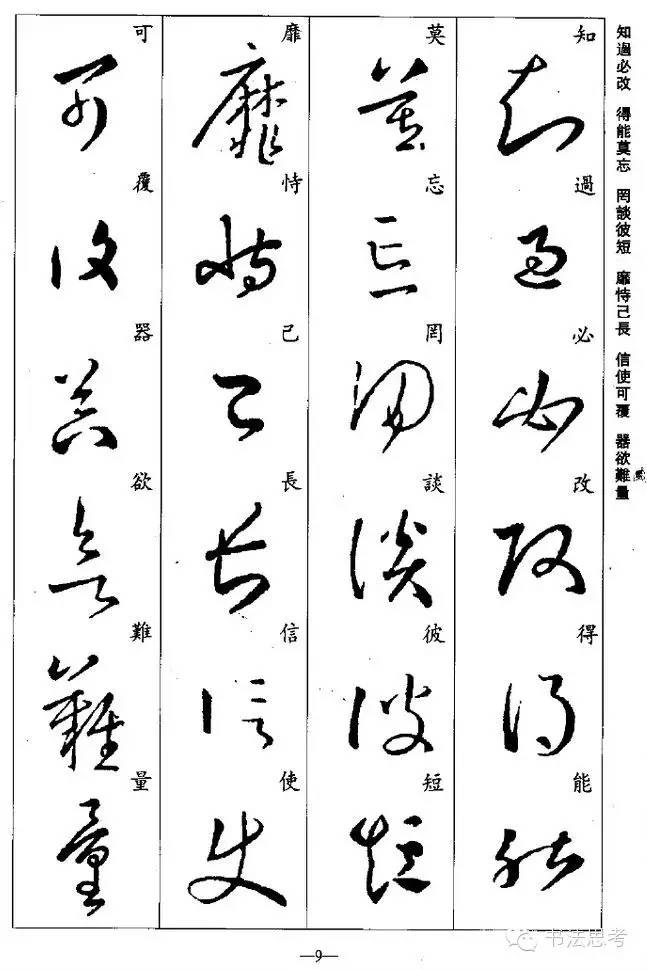 知過必改 得能莫忘 罔談彼短 靡恃己長 信使可覆 器欲難量
知過必改得能
莫忘罔談彼短
靡恃己長信使
可覆器欲難量
—9—
书法思考